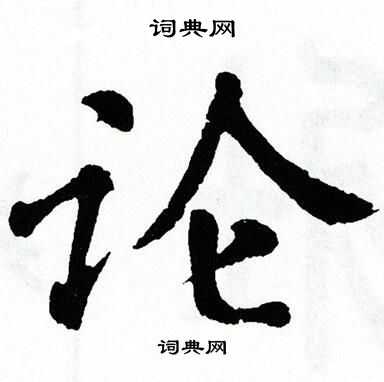 词典网
论
词典网